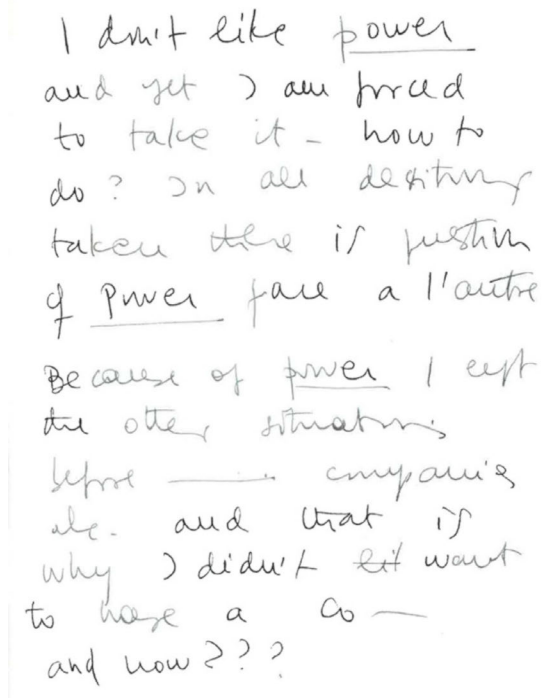 I don't like power
and yet I am forced
to take it - how to
do? In all
taken there is question
of Power face a l'autre
Because of power I left
the other situations
before ——— companies
etc. and that is
why I didn't want
to have a Co —
and now???